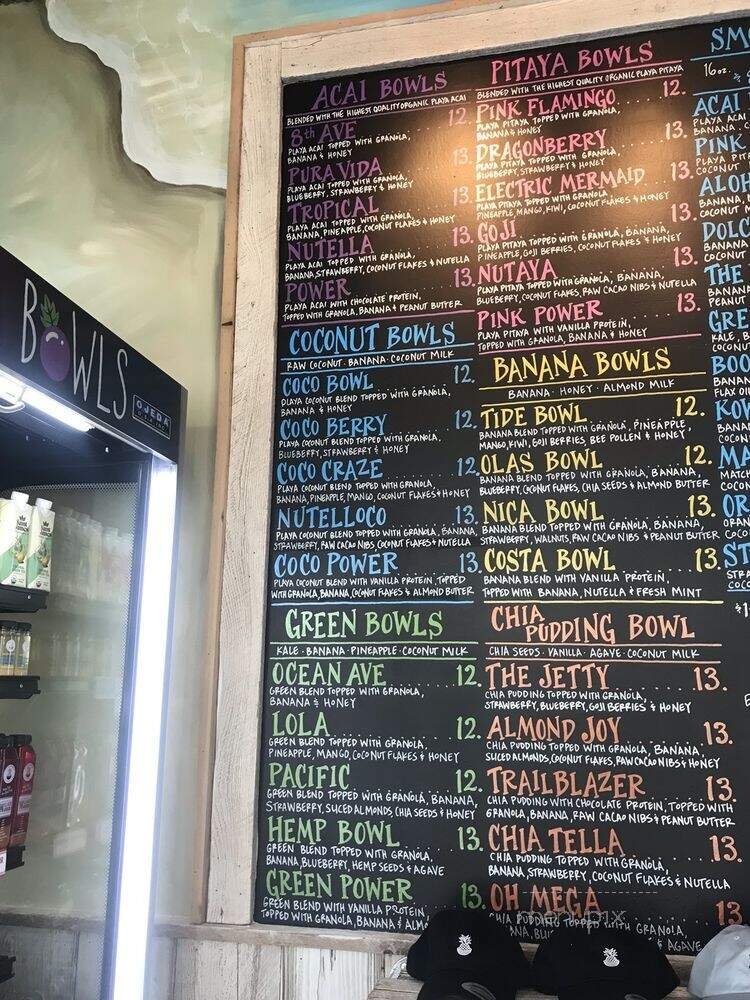 BOWLS
OJEDA
ACAI BOWLS
BLENDED WITH THE HIGHEST QUALITY ORGANIC PLAYA ACAI
8th AVE 12.
PLAYA ACAI TOPPED WITH GRANOLA,
BANANA & HONEY
PURA VIDA 13.
PLAYA ACAI TOPPED WITH GRANOLA,
BLUEBERRY, STRAWBERRY & HONEY
TROPICAL 13.
PLAYA ACAI TOPPED WITH GRANOLA,
BANANA, PINEAPPLE, COCONUT FLAKES & HONEY
NUTELLA 13.
PLAYA ACAI TOPPED WITH GRANOLA,
BANANA, STRAWBERRY, COCONUT FLAKES & NUTELLA
POWER 13.
PLAYA ACAI WITH CHOCOLATE PROTEIN,
TOPPED WITH GRANOLA, BANANA & PEANUT BUTTER
COCONUT BOWLS
RAW COCONUT · BANANA · COCONUT MILK
COCO BOWL 12.
PLAYA COCONUT BLEND TOPPED WITH GRANOLA,
BANANA & HONEY
COCO BERRY 12.
PLAYA COCONUT BLEND TOPPED WITH GRANOLA,
BLUEBERRY, STRAWBERRY & HONEY
COCO CRAZE 12.
PLAYA COCONUT BLEND TOPPED WITH GRANOLA,
BANANA, PINEAPPLE, MANGO, COCONUT FLAKES & HONEY
NUTELLOCO 13.
PLAYA COCONUT BLEND TOPPED WITH GRANOLA, BANANA,
STRAWBERRY, RAW CACAO NIBS, COCONUT FLAKES & NUTELLA
COCO POWER 13.
PLAYA COCONUT BLEND WITH VANILLA PROTEIN, TOPPED
WITH GRANOLA, BANANA, COCONUT FLAKES & ALMOND BUTTER
GREEN BOWLS
KALE · BANANA · PINEAPPLE · COCONUT MILK
OCEAN AVE 12.
GREEN BLEND TOPPED WITH GRANOLA,
BANANA & HONEY
LOLA 12.
GREEN BLEND TOPPED WITH GRANOLA,
PINEAPPLE, MANGO, COCONUT FLAKES & HONEY
PACIFIC 12.
GREEN BLEND TOPPED WITH GRANOLA, BANANA,
STRAWBERRY, SLICED ALMONDS, CHIA SEEDS & HONEY
HEMP BOWL 13.
GREEN BLEND TOPPED WITH GRANOLA,
BANANA, BLUEBERRY, HEMP SEEDS & AGAVE
GREEN POWER 13.
GREEN BLEND WITH VANILLA PROTEIN,
TOPPED WITH GRANOLA, BANANA & ALMO
PITAYA BOWLS
BLENDED WITH THE HIGHEST QUALITY ORGANIC PLAYA PITAYA
PINK FLAMINGO 12.
PLAYA PITAYA TOPPED WITH GRANOLA,
BANANA & HONEY
DRAGONBERRY 13.
PLAYA PITAYA TOPPED WITH GRANOLA,
BLUEBERRY, STRAWBERRY & HONEY
ELECTRIC MERMAID 13.
PLAYA PITAYA TOPPED WITH GRANOLA,
PINEAPPLE, MANGO, KIWI, COCONUT FLAKES & HONEY
GOJI 13.
PLAYA PITAYA TOPPED WITH GRANOLA, BANANA,
PINEAPPLE, GOJI BERRIES, COCONUT FLAKES & HONEY
NUTAYA 13.
PLAYA PITAYA TOPPED WITH GRANOLA, BANANA,
BLUEBERRY, COCONUT FLAKES, RAW CACAO NIBS & NUTELLA
PINK POWER 13.
PLAYA PITAYA WITH VANILLA PROTEIN,
TOPPED WITH GRANOLA, BANANA & HONEY
BANANA BOWLS
BANANA · HONEY · ALMOND MILK
TIDE BOWL 12.
BANANA BLEND TOPPED WITH GRANOLA, PINEAPPLE,
MANGO, KIWI, GOJI BERRIES, BEE POLLEN & HONEY
OLAS BOWL 12.
BANANA BLEND TOPPED WITH GRANOLA, BANANA,
BLUEBERRY, COCONUT FLAKES, CHIA SEEDS & ALMOND BUTTER
NICA BOWL 13.
BANANA BLEND TOPPED WITH GRANOLA, BANANA,
STRAWBERRY, WALNUTS, RAW CACAO NIBS & PEANUT BUTTER
COSTA BOWL 13.
BANANA BLEND WITH VANILLA PROTEIN,
TOPPED WITH BANANA, NUTELLA & FRESH MINT
CHIA
PUDDING BOWL
CHIA SEEDS · VANILLA · AGAVE · COCONUT MILK
THE JETTY 13.
CHIA PUDDING TOPPED WITH GRANOLA,
STRAWBERRY, BLUEBERRY, GOJI BERRIES & HONEY
ALMOND JOY 13.
CHIA PUDDING TOPPED WITH GRANOLA, BANANA,
SLICED ALMONDS, COCONUT FLAKES, RAW CACAO NIBS & HONEY
TRAILBLAZER 13.
CHIA PUDDING WITH CHOCOLATE PROTEIN, TOPPED WITH
GRANOLA, BANANA, RAW CACAO NIBS & PEANUT BUTTER
CHIA TELLA 13.
CHIA PUDDING TOPPED WITH GRANOLA,
BANANA, STRAWBERRY, COCONUT FLAKES & NUTELLA
OH MEGA 13.
CHIA PUDDING TOPPED WITH GRANOLA,
& AGAVE
SMO
16 oz.
ACAI
PLAYA ACAI
BANANA
PINK
PLAYA PIT
COCONUT
ALOH
BANANA
COCONUT M
DOLC
BANANA
COCONUT
THE
BANANA
PEANUT
GRE
KALE, B
COCONUT
BOO
BANANA
FLAX OIL
KOW
BANAN
MA
MATCH
COCON
OR
ST